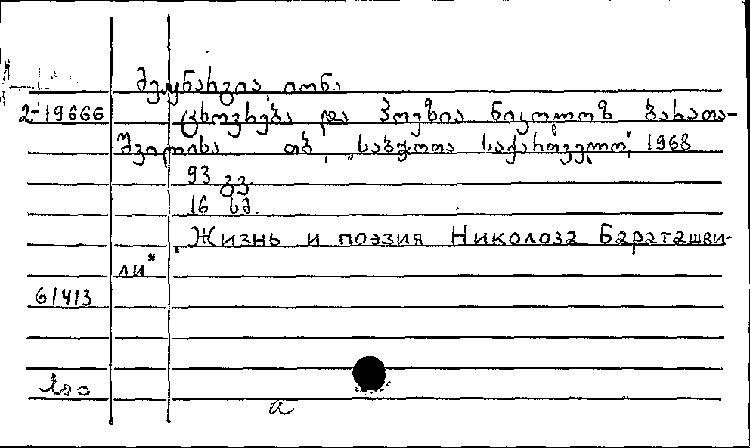 მეუნარგია იონა
2-19666 ცხოვრება და პოეზია ნიკოლოზ ბარათა-
შვილისა თბ., „საბჭოთა საქართველო“, 1968
93 გვ.
16 სმ.
„Жизнь и поэзия Николоза Бараташви-
ли"
61413
a